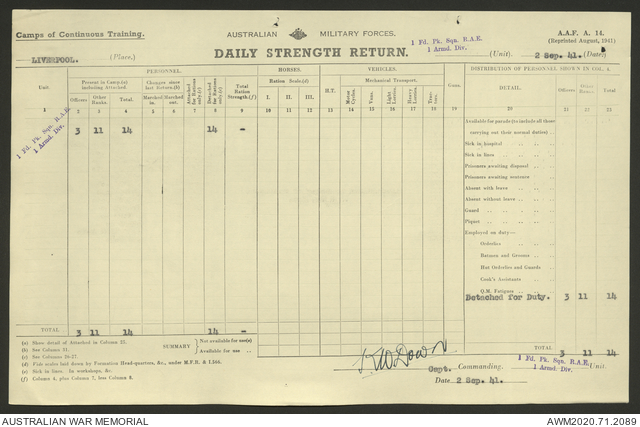 Camps of Continuous Training.
AUSTRALIAN MILITARY FORCES.
A.A.F. A. 14.
(Reprinted August, 1941)
LIVERPOOL. (Place.)
DAILY STRENGTH RETURN.
1 Fd. Pk. Sqn. R.A.E.
1 Armd. Div.
(Unit).
2 Sep. 41. (Date)
PERSONNEL. HORSES. VEHICLES. DISTRIBUTION OF PERSONNEL SHOWN IN COL. 4.
Unit.
Present in Camp,(a) including Attached.
Changes since last Return.(b)
Attached for Rations only.(c)
Detached for Rations only.(e)
Total Ration Strength.(f)
Ration Scale.(d)
H.T.
Mechanical Transport.
Guns.
DETAIL.
Officers. Other Ranks. Total. Marched in. Marched out.
I. II. III.
Motor Cycles. Vans. Light Lorries. Heavy Lorries. Tractors.
Officers. Other Ranks. Total.
1 2 3 4 5 6 7 8 9 10 11 12 13 14 15 16 17 18 19 20 21 22 23
1 Fd. Pk. Sqn. R.A.E.
1 Armd. Div.
3 11 14 14 -
Available for parade (to include all those
carrying out their normal duties)
Sick in hospital
Sick in lines
Prisoners awaiting disposal
Prisoners awaiting sentence
Absent with leave
Absent without leave
Guard
Piquet
Employed on duty—
Orderlies
Batmen and Grooms
Hut Orderlies and Guards
Cook's Assistants
Q.M. Fatigues
Detached for Duty. 3 11 14
TOTAL 3 11 14 14 -
(a) Show detail of Attached in Column 23.
(b) See Column 31.
(c) See Columns 26-27.
(d) Fish scales laid down by Formation Head-quarters, &c., under M.F.R. & I.166.
(e) Sick in lines. In workshops, &c.
(f) Column 4, plus Column 7, less Column 8.
SUMMARY
Not available for use(e)
Available for use
TOTAL 3 11 14
Capt. Commanding.
1 Fd. Pk. Sqn. R.A.E.
1 Armd. Div.
Unit.
Date 2 Sep. 41.
AUSTRALIAN WAR MEMORIAL
AWM2020.71.2089